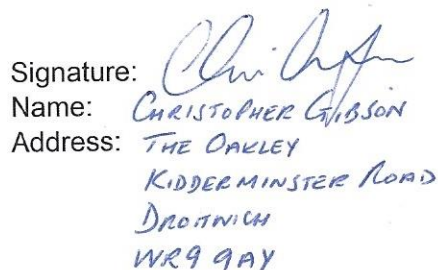 Signature:
Name: CHRISTOPHER GIBSON
Address: THE OAKLEY
KIDDERMINSTER ROAD
DROITWICH
WR9 9AY